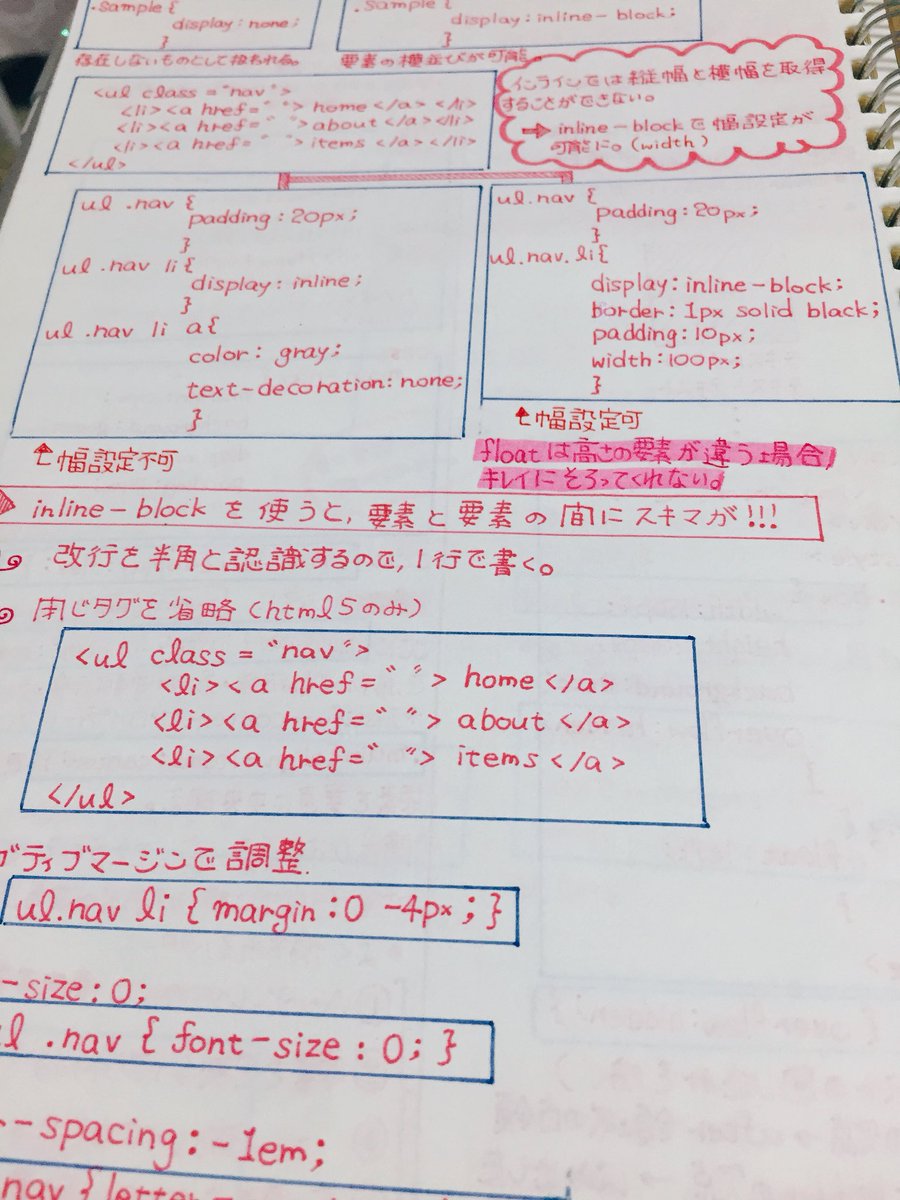 .Sample {
display: none;
}
.sample {
display: inline-block;
}
存在しないものとして扱われる。
要素の横並びが可能。
<ul class="nav">
<li><a href=" "> home </a> </li>
<li><a href=" "> about </a></li>
<li><a href=" "> items </a></li>
</ul>
インラインでは縦幅と横幅を取得
することができない。
⇒ inline-blockで幅設定が
可能に。(width)
ul .nav {
padding: 20px;
}
ul .nav li {
display: inline;
}
ul .nav li a {
color: gray;
text-decoration: none;
}
ul.nav {
padding: 20px;
}
ul.nav.li{
display: inline-block;
border: 1px solid black;
padding: 10px;
width: 100px;
}
幅設定不可
幅設定可
floatは高さの要素が違う場合,
キレイにそろってくれない。
inline-block を使うと, 要素と要素の間にスキマが!!!
改行を半角と認識するので, 1行で書く。
閉じタグを省略 (html5のみ)
<ul class = "nav">
<li><a href=" "> home </a>
<li><a href=" "> about </a>
<li><a href=" "> items </a>
</ul>
ガティブマージンで調整.
ul.nav li { margin: 0 -4px; }
-size: 0;
ul .nav { font-size: 0; }
-spacing: -1em;
.nav { letter-